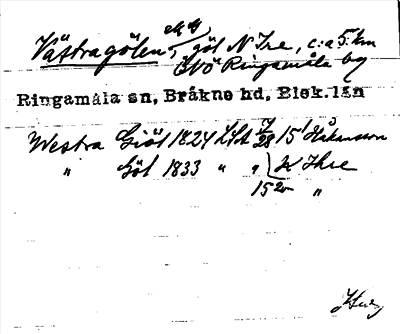 Västragölen, göl N Ire, c:a 5 km
NÖ Ringamåla by
Ringamåla sn, Bråkne hd, Blek.län
Westra Giöl 1824 LSA 15' Håkansson
" Göl 1833 " " N Ihre
15 "